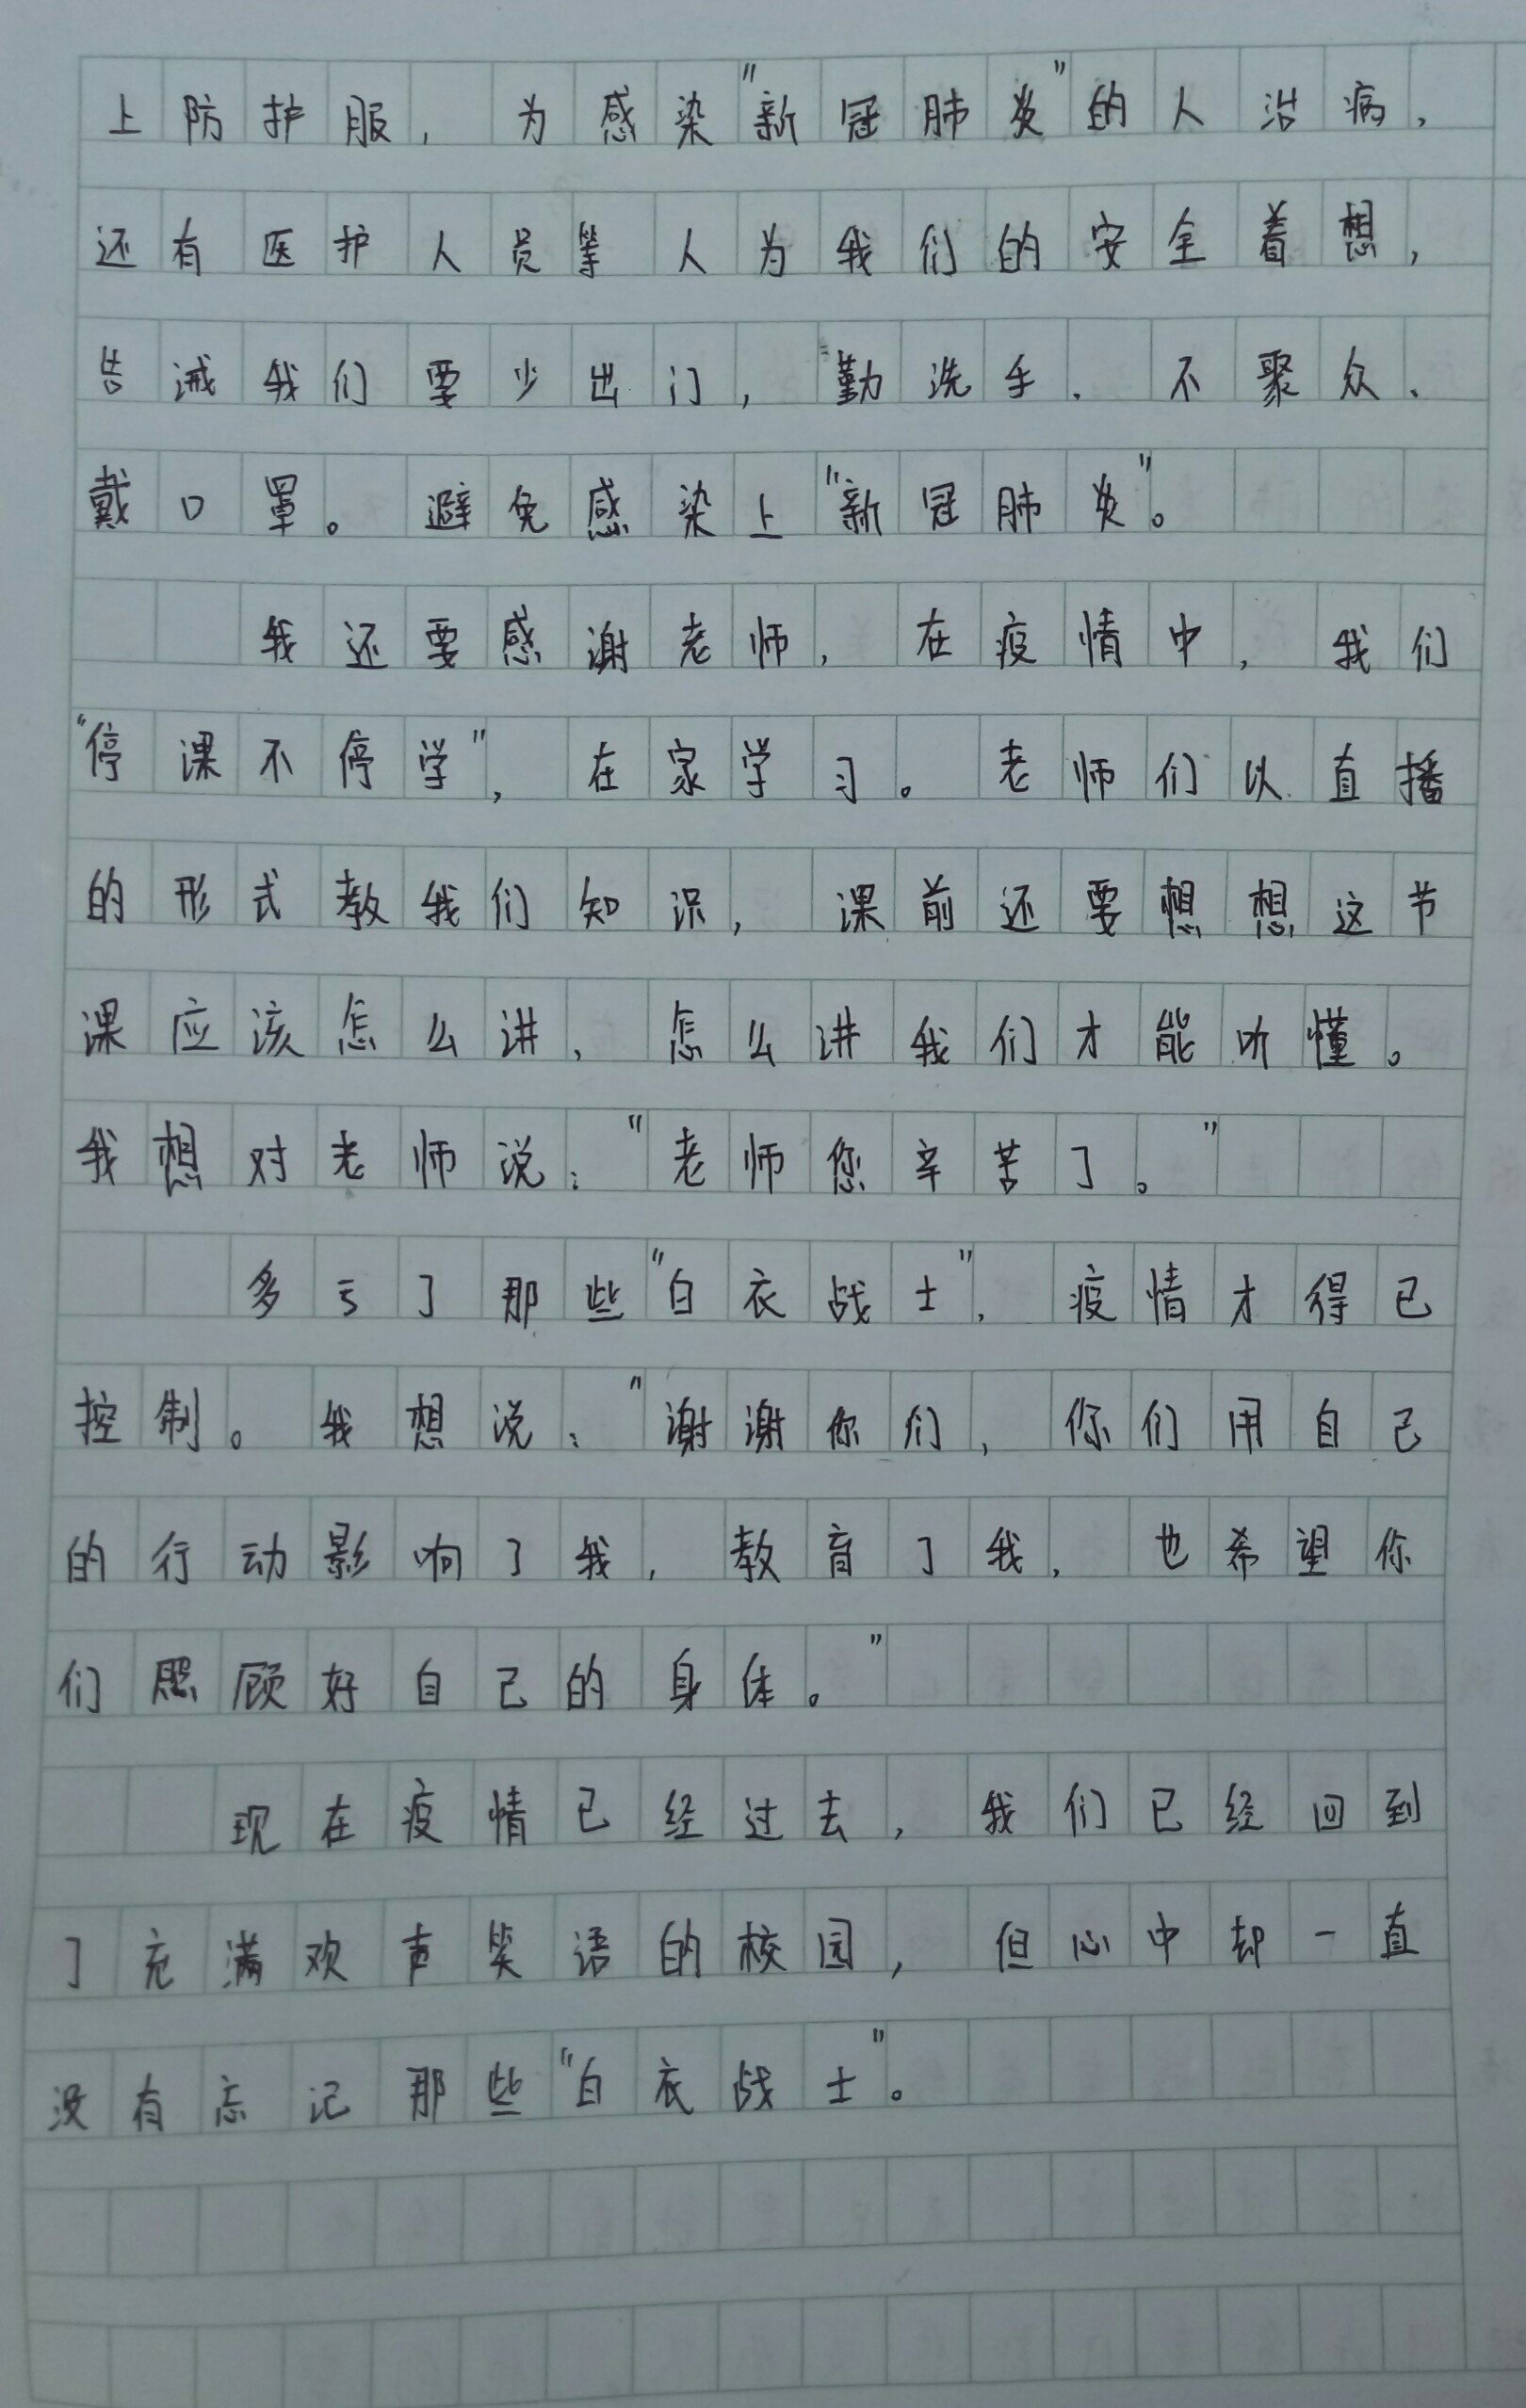 上防护服，为感染"新冠肺炎"的人治病，
还有医护人员等人为我们的安全着想，
告诫我们要少出门，勤洗手、不聚众、
戴口罩。避免感染上"新冠肺炎"。
我还要感谢老师，在疫情中，我们
"停课不停学"，在家学习。老师们以直播
的形式教我们知识，课前还要想想这节
课应该怎么讲，怎么讲我们才能听懂。
我想对老师说："老师您辛苦了。"
多亏了那些"白衣战士"，疫情才得已
控制。我想说："谢谢你们，你们用自己
的行动影响了我，教育了我，也希望你
们照顾好自己的身体。"
现在疫情已经过去，我们已经回到
了充满欢声笑语的校园，但心中却一直
没有忘记那些"白衣战士"。